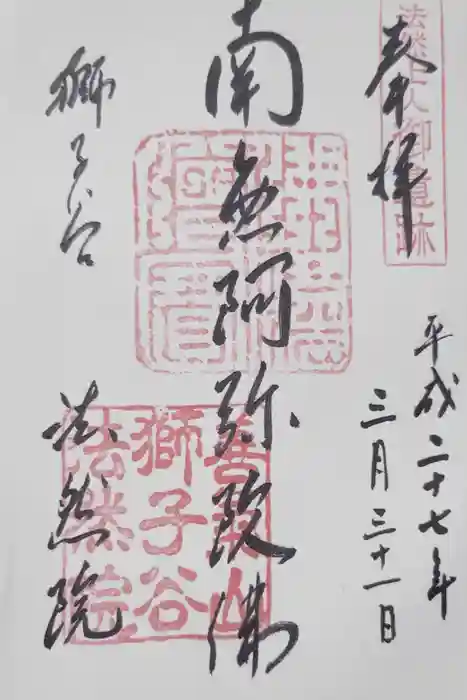 奉拝
法然上人御遺跡
平成二十七年
三月三十一日
南無阿弥陀佛
獅子谷
法然院
善氣山
獅子谷
法然院